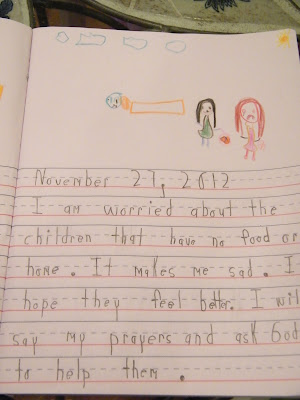 November 27, 2012
I am worried about the
children that have no food or
home. It makes me sad. I
hope they feel better. I wil
say my prayers and ask God
to help them.